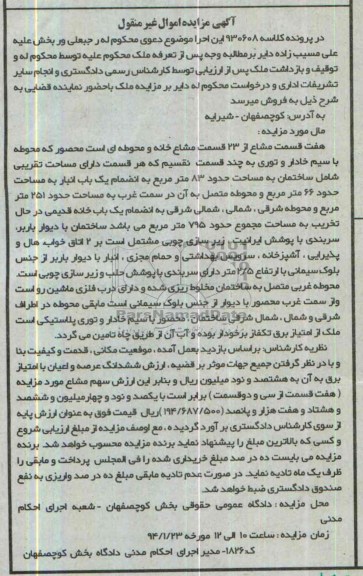 آگهی مزایده اموال غیر منقول
در پرونده کلاسه ۹۳۰۶۰۸ این اجرا موضوع دعوی محکوم له رجبعلی ور بخش علیه
علی مسیب زاده دایر بر مطالبه وجه پس از تعرفه ملک محکوم علیه توسط محکوم له و
توقیف و بازداشت ملک پس از ارزیابی توسط کارشناس رسمی دادگستری و انجام سایر
تشریفات اداری و درخواست محکوم له دایر بر مزایده ملک باحضور نماینده قضایی به
شرح ذیل به فروش میرسد
به آدرس: کوچصفهان - شیرایه
مال مورد مزایده :
هفت قسمت مشاع از ۲۳ قسمت مشاع خانه و محوطه ای است محصور که محوطه
با سیم خاردار و توری به چند قسمت تقسیم که هر قسمت دارای مساحت تقریبی
شامل ساختمان به مساحت حدود ۸۳ متر مربع به انضمام یک باب انبار به مساحت
حدود ۶۶ متر مربع و محوطه متصل به آن در سمت غرب به مساحت حدود ۲۵۱ متر
مربع و محوطه شرقی ، شمالی ، شمالی شرقی به انضمام یک باب خانه قدیمی در حال
تخریب به مساحت مجموع حدود ۷۹۵ متر مربع می باشد ساختمان با دیوار باربر،
سربندی با پوشش ایرانیت ، زیر سازی چوبی مشتمل است بر ۲ اتاق خواب هال و
پذیرایی ، آشپزخانه ، سرویس بهداشتی و حمام مجزی ، انبار با دیوار باربر از جنس
بلوک سیمانی با ارتفاع ۲/۵ متر دارای سربندی با پوشش حلب و زیر سازی چوبی است.
محوطه غربی متصل به ساختمان مخلوط ریزی شده و دارای درب فلزی ماشین رو است
واز سمت غرب محصور با دیوار از جنس بلوک سیمانی است مابقی محوطه در اطراف
شرقی و شمال ، شمال شرقی ساختمان محصور با سیم خادار و توری پلاستیکی است
ملک از امتیاز برق تکفاز برخودار بوده و آب آن از طریق چاه تامین می گردد.
نظریه کارشناس: براساس بازدید بعمل آمده ، موقعیت مکانی ، قدمت و کیفیت بنا
و با در نظر گرفتن جمیع جهات موثر بر قضیه ، ارزش ششدانگ عرصه و اعیان با امتیاز
برق به آن به هشتصد و نود میلیون ریال و بنابر این ارزش سهم مشاع مورد مزایده
( هفت قسمت از سی و دو قسمت ) برابر است با یکصد و نود و چهار میلیون و ششصد
و هشتاد و هفت هزار و پانصد (۱۹۴/۶۸۷/۵۰۰) ریال قیمت فوق به عنوان ارزش پایه
از سوی کارشناس دادگستری بر آورد گردیده ، مع لوصف مزایده از مبلغ ارزیابی شروع
و کسی که بالاترین مبلغ را پیشنهاد نماید برنده مزایده محسوب خواهد شد. برنده
مزایده می بایست ده در صد مبلغ خریداری شده را فی المجلس پرداخت و مابقی را
ظرف یک ماه تادیه نماید. در صورت عدم تادیه مابقی مبلغ ده در صد واریزی به نفع
صندوق دادگستری ضبط خواهد شد.
محل مزایده : دادگاه عمومی حقوقی بخش کوچصفهان - شعبه اجرای احکام
مدنی
زمان مزایده : ساعت ۱۰ الی ۱۲ مورخه ۹۴/۱/۲۳
ک ۱۸۲۶- مدیر اجرای احکام مدنی دادگاه بخش کوچصفهان